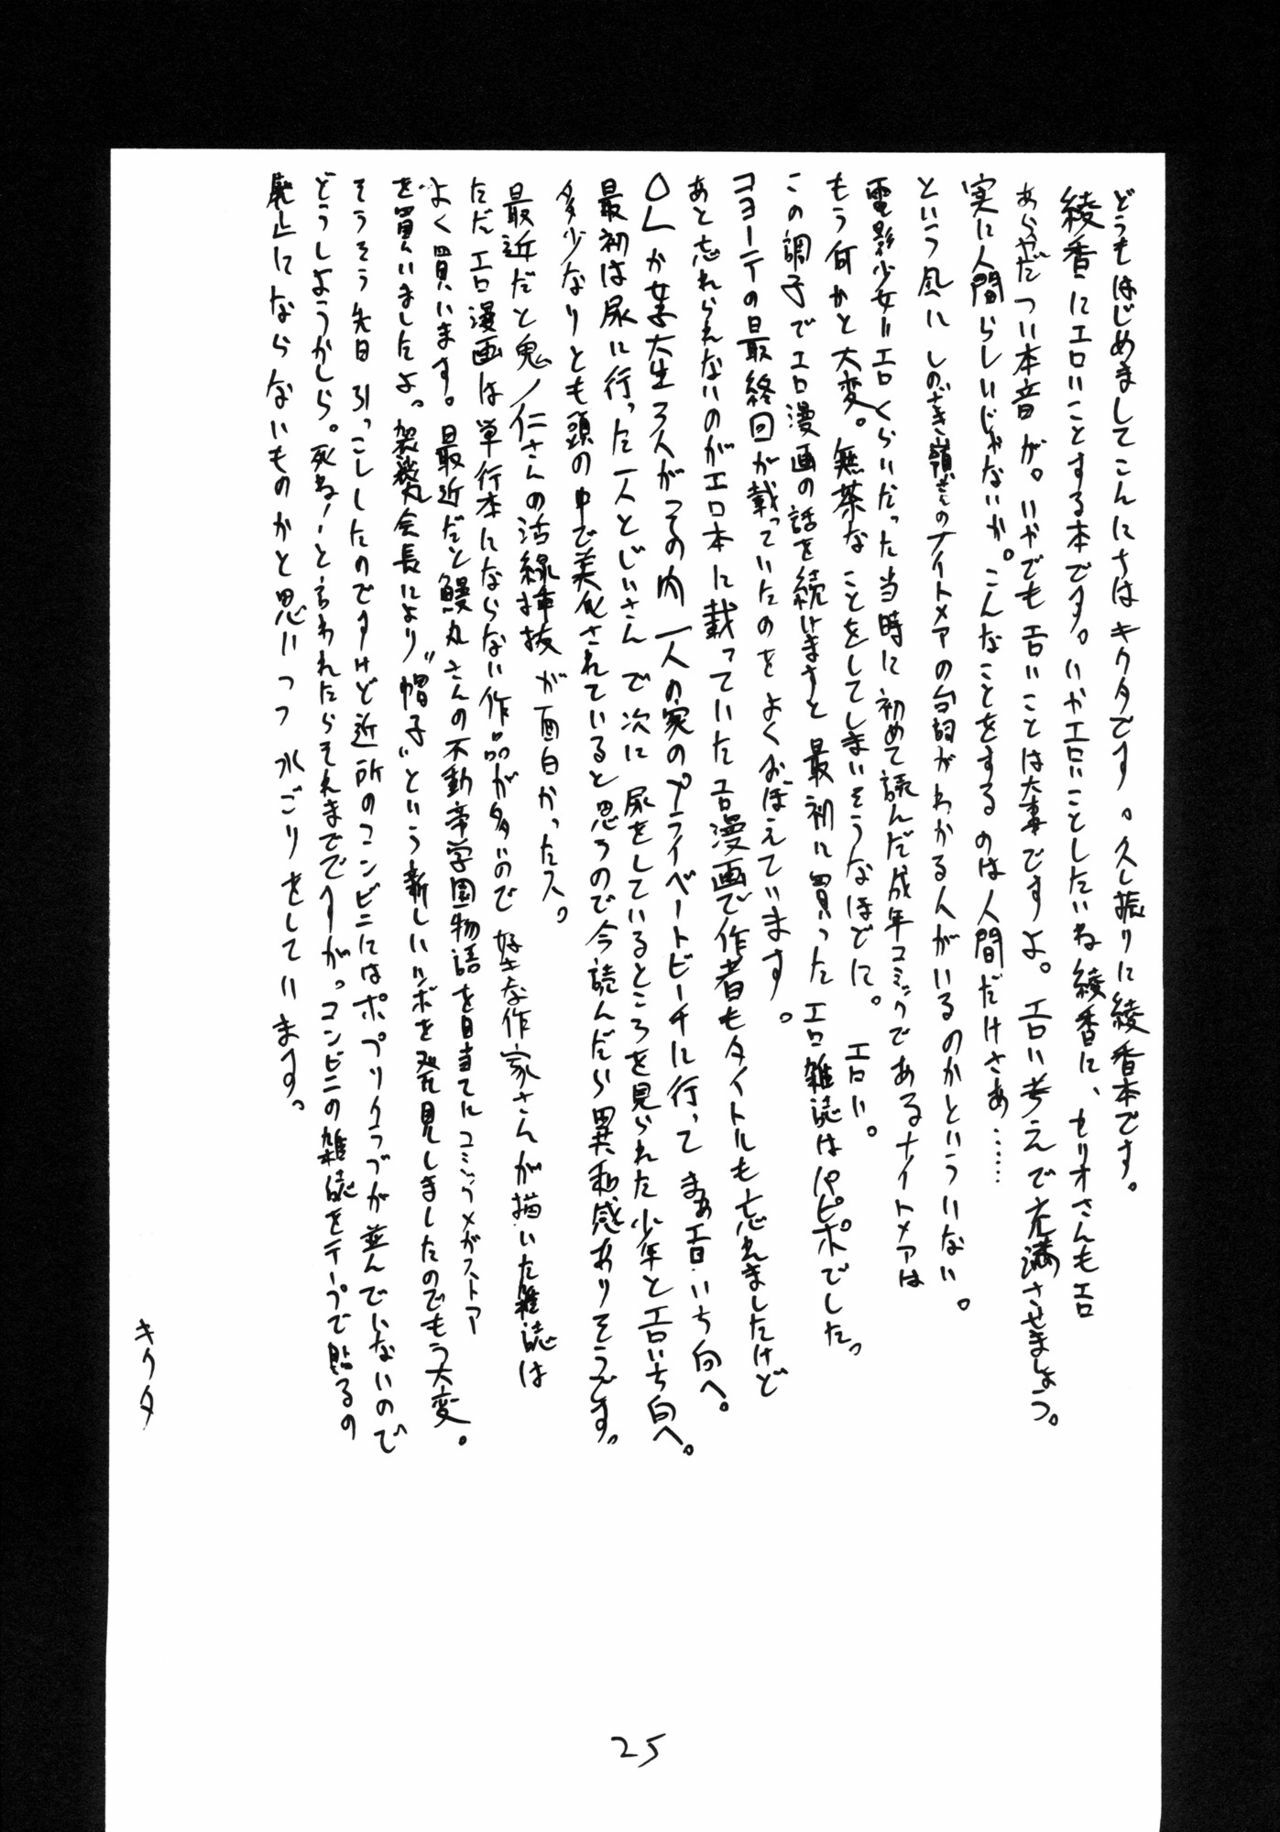 どうもはじめましてこんにちはキクタです。久し振りに綾香本です。
綾香にエロいことする本です。いやエロいことしたいね綾香に、セリオさんもエロ
あらやだつい本音が。いやでもエロいことは大事ですよ。エロい考えで充満させましょう。
実に人間らしいじゃないか。こんなことをするのは人間だけさあ……
という風にしのざき嶺さんのナイトメアの台詞がわかる人がいるのかというない。
電影少女=エロくらいだった当時に初めて読んだ成年コミックであるナイトメアは
もう何かと大変。無茶なことをしてしまいそうなほどに。エロい。
この調子でエロ漫画の話を続けますと最初に買ったエロ雑誌はパピポでした。
コヨーテの最終回が載っていたのをよくおぼえています。
あと忘れられないのがエロ本に載っていたエロ漫画で作者もタイトルも忘れましたけど
OLか女子大生3人がその内一人の家のプライベートビーチに行ってまぁエロいち向へ。
最初は尿に行った一人とじいさんで次に尿をしているところを見られた少年とエロいち向へ。
多少なりとも頭の中で美化されていると思うので今読んだら異和感ありそうです。
最近だと鬼ノ仁さんの活線挿抜が面白かったス。
ただエロ漫画は単行本にならない作品が多いので好きな作家さんが描いた雑誌は
よく買います。最近だと鰻丸さんの不動帝学園物語を目当てにコミックメガストア
を買いましたよ。袈裟丸会長により"帽子"という新しいツボを発見しましたのでもう大変。
そうそう先日引っこししたのですけど近所のコンビニにはポプリクラブが並んでいないので
どうしようかしら。死ね!と言われたらそれまでですが。コンビニの雑誌をテープで貼るの
廃止にならないものかと思いつつ水ごりをしています。
キクタ
25